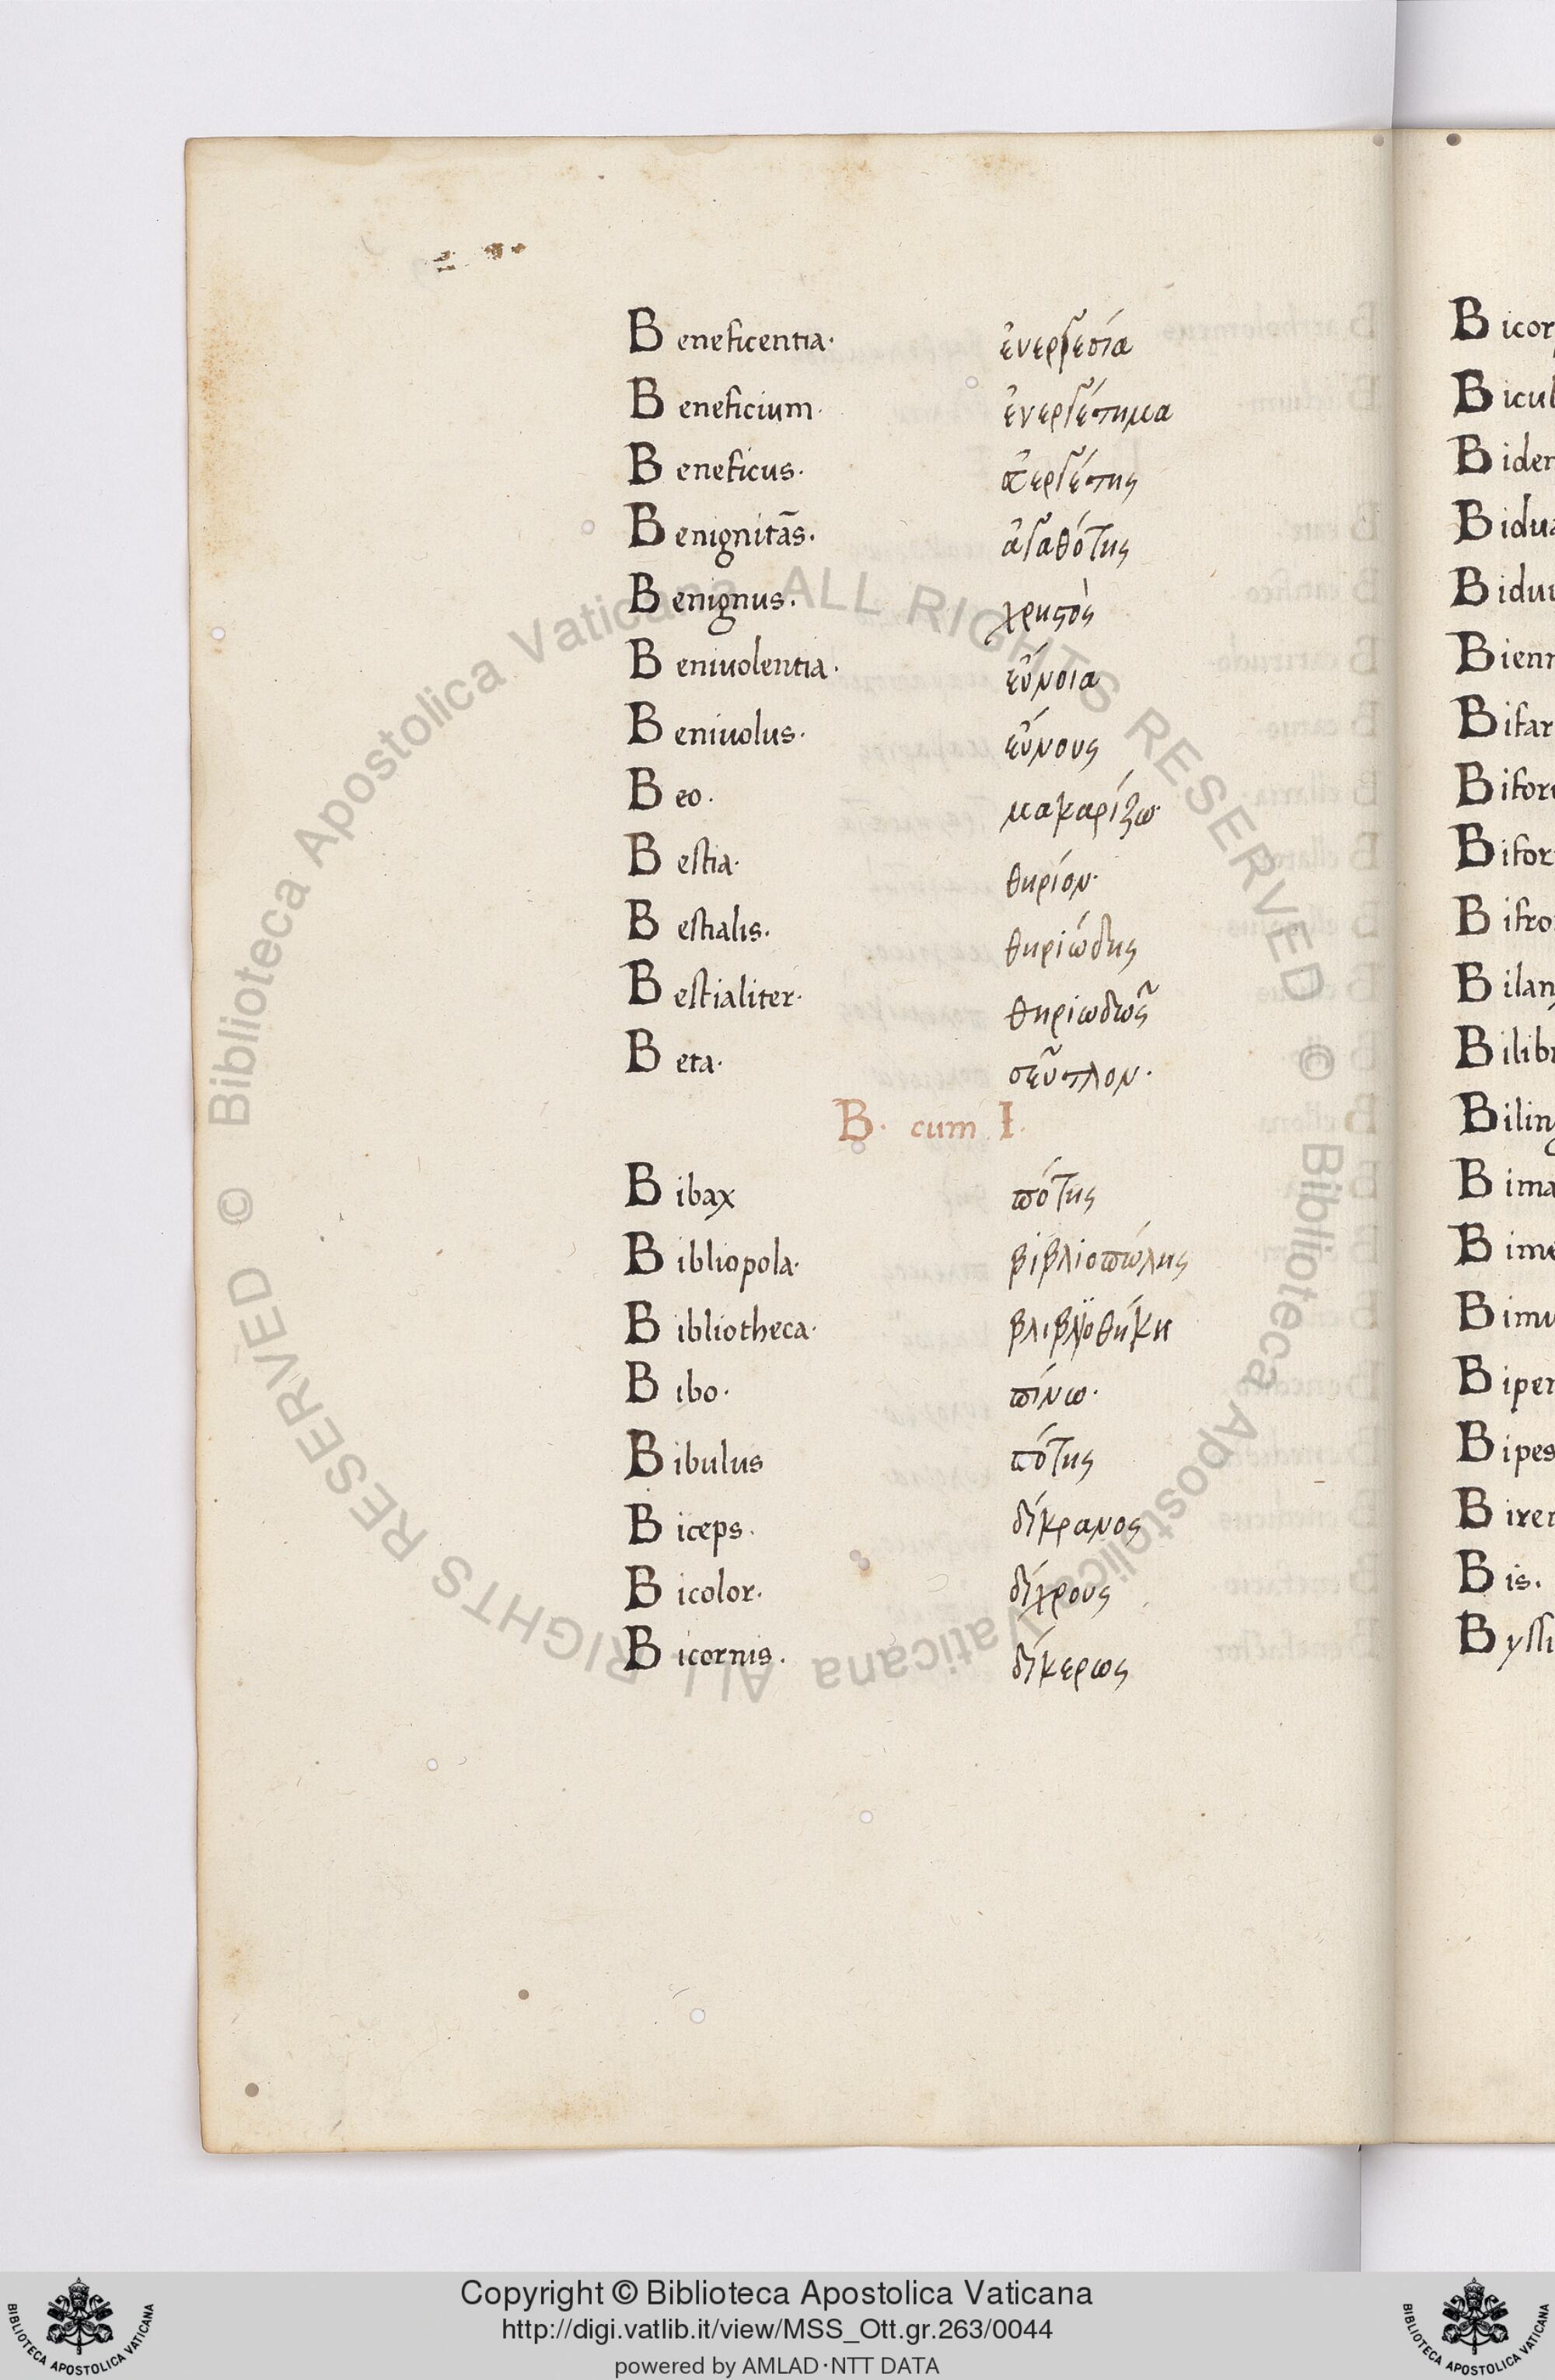 Beneficentia. ἐνεργεσία
Beneficium. ἐνεργέτημα
Beneficus. ἐυεργέτης
Benignitās. ἀγαθότης
Benignus. χρηϛὸς
Beniuolentia. εὔνοια
Beniuolus. εὔνους
Beo. μακαρίζω
Bestia. θηρίον.
Bestialis. θηριώδης
Bestialiter. θηριωδῶς
Beta. σεῦτλον.
B. cum I.
Bibax πότης
Bibliopola. βιβλιοπώλης
Bibliotheca. βλιβλϊοθήκη
Bibo. πίνω.
Bibulus πότης
Biceps. δίκρανος
Bicolor. δίχρους
Bicornis. δίκερως
Bicor
Bicul
Biden
Bidua
Bidui
Bienn
Bifar
Bifor
Bifor
Bifro
Bilan
Bilib
Bilin
Bima
Bime
Bimu
Bipen
Bipes
Birem
Bis.
Byssi
© Biblioteca Apostolica Vaticana ALL RIGHTS RESERVED
© Biblioteca Apostolica Vaticana ALL RIGHTS RESERVED
Copyright © Biblioteca Apostolica Vaticana
http://digi.vatlib.it/view/MSS_Ott.gr.263/0044
powered by AMLAD·NTT DATA
BIBLIOTECA APOSTOLICA VATICANA
BIBLIOTECA APOSTOLICA VATICANA